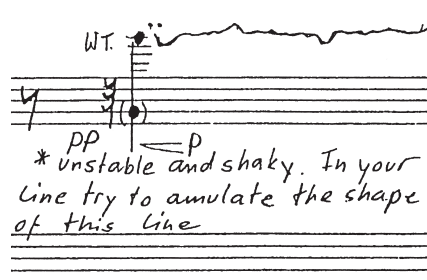 WT.
PP P
* unstable and shaky. In your
line try to amulate the shape
of this line